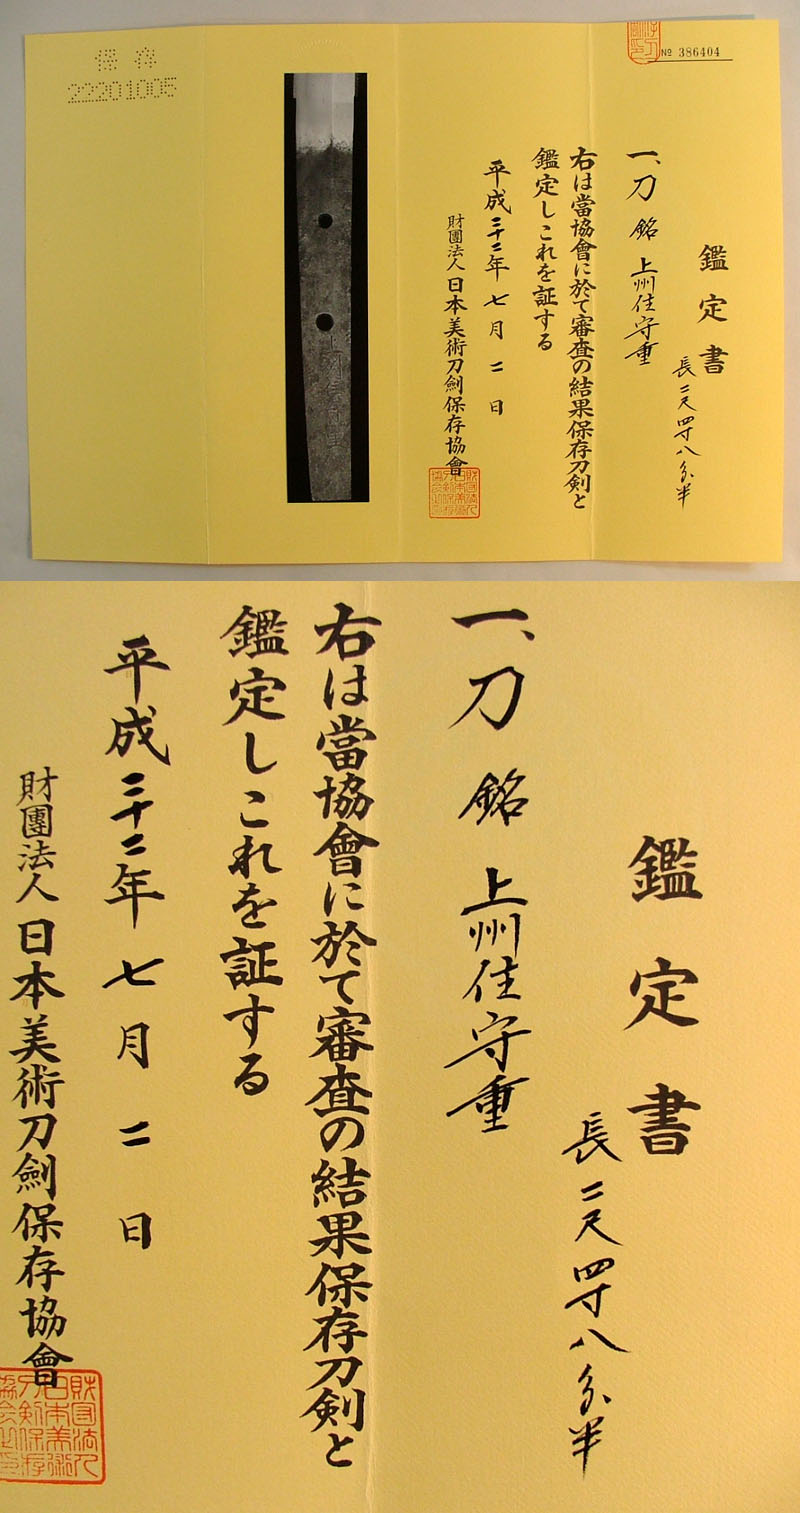 № 386404
鑑定書
長二尺四寸八分半
一、刀 銘 上州住守重
右は當協會に於て審査の結果保存刀剣と
鑑定しこれを証する
平成二十二年七月二日
財團法人日本美術刀劍保存協會
上州住守重
保存
22201005
鑑定書
長二尺四寸八分半
一、刀 銘 上州住守重
右は當協會に於て審査の結果保存刀剣と
鑑定しこれを証する
平成二十二年七月二日
財團法人日本美術刀劍保存協會